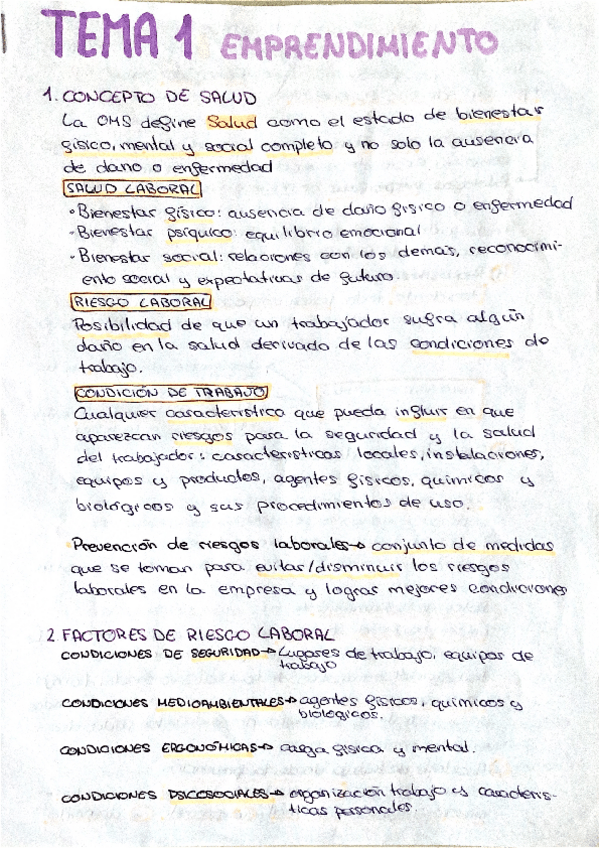 TEMA 1 EMPRENDIMIENTO
1. CONCEPTO DE SALUD
La OMS define Salud como el estado de bienestar
físico, mental y social completo y no solo la ausencia
de daño o enfermedad
SALUD LABORAL
• Bienestar físico: ausencia de daño físico o enfermedad
• Bienestar psíquico: equilibrio emocional
• Bienestar social: relaciones con los demás, reconocimi-
ento social y expectativas de futuro
RIESGO LABORAL
Posibilidad de que un trabajador sufra algún
daño en la salud derivado de las condiciones de
trabajo.
CONDICIÓN DE TRABAJO
Cualquier característica que pueda influir en que
aparezcan riesgos para la seguridad y la salud
del trabajador: características locales, instalaciones,
equipos y productos, agentes físicos, químicos y
biológicos y sus procedimientos de uso.
• Prevención de riesgos laborales → conjunto de medidas
que se toman para evitar/disminuir los riesgos
laborales en la empresa y lograr mejores condiciones
2. FACTORES DE RIESGO LABORAL
CONDICIONES DE SEGURIDAD → Lugares de trabajo, equipos de
trabajo
CONDICIONES MEDIOAMBIENTALES → agentes físicos, químicos y
biológicos.
CONDICIONES ERGONÓMICAS → carga física y mental.
CONDICIONES PSICOSOCIALES → organización trabajo y caracterís-
ticas personales.